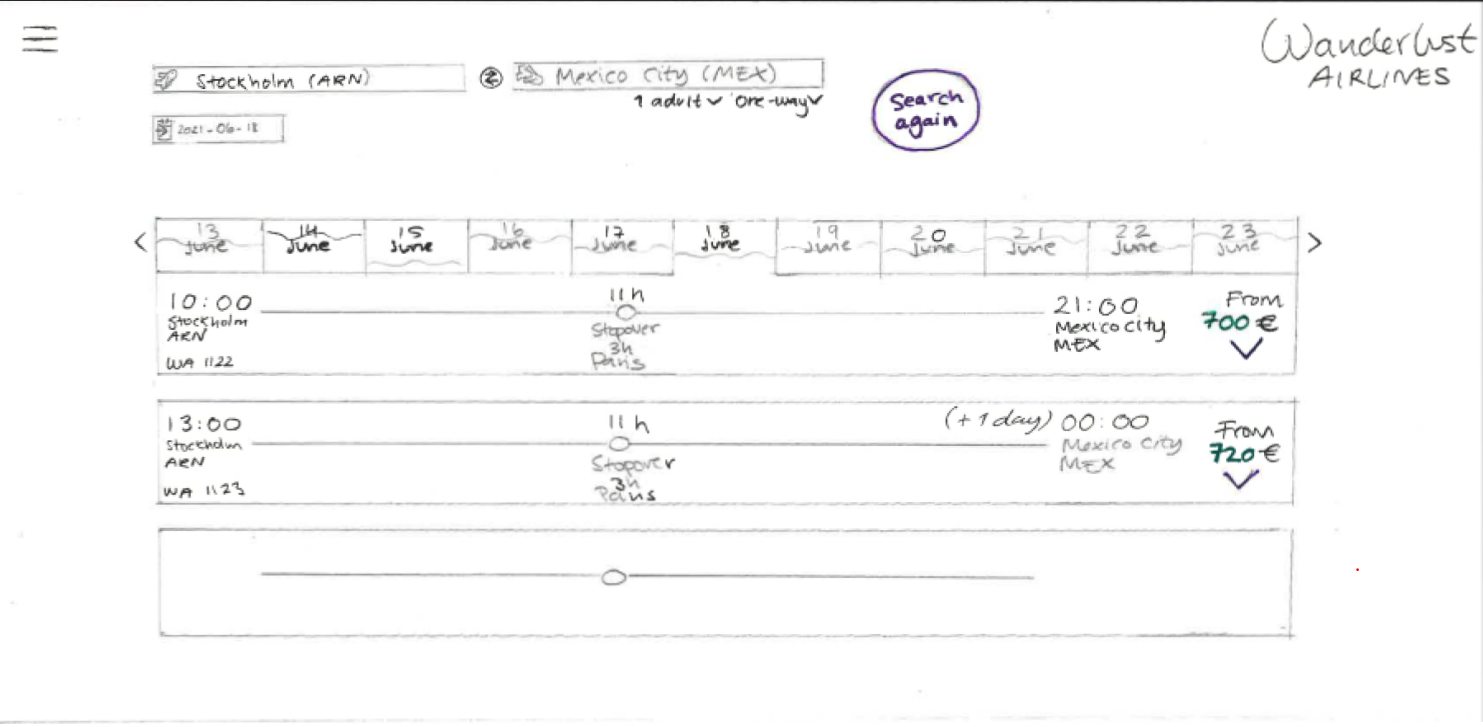 Wanderlust
AIRLINES
Stockholm (ARN)
Mexico City (MEX)
1 adult One-way
Search
again
2021-06-18
< 13 June 14 June 15 June 16 June 17 June 18 June 19 June 20 June 21 June 22 June 23 June >
10:00
Stockholm
ARN
WA 1122
11h
Stopover
3h
Paris
21:00
Mexico City
MEX
From
700 €
13:00
Stockholm
ARN
WA 1123
11h
Stopover
3h
Paris
(+1 day) 00:00
Mexico City
MEX
From
720 €